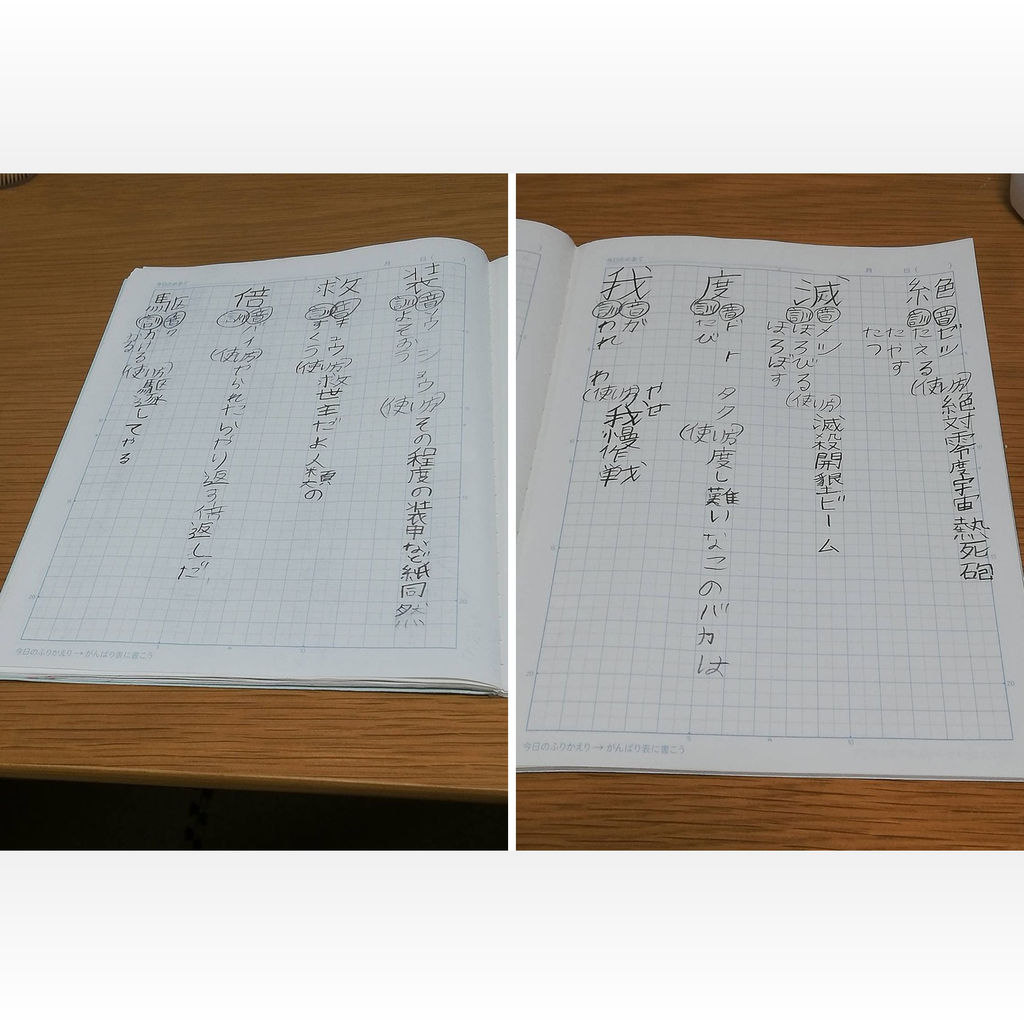 装
音ソウ ショウ
訓よそおう
(使い方)その程度の装甲など紙同然
救
音キュウ
訓すくう
(使い方)救世主だよ人類の
倍
音バイ
(使い方)やられたらやり返す倍返しだ
駆
音ク
訓かける
かる
(使い方)駆逐してやる
今日のふりかえり→がんばり表に書こう
今日のめあて
月 日( )
絶
音ゼツ
訓たえる
たやす
たつ
(使い方)絶対零度宇宙熱死砲
滅
音メツ
訓ほろびる
ほろぼす
(使い方)滅殺開墾ビーム
度
音ド ト タク
訓たび
(使い方)度し難いなこのバカは
我
音ガ
訓われ わ
(使い方)やせ我慢作戦
今日のふりかえり→がんばり表に書こう